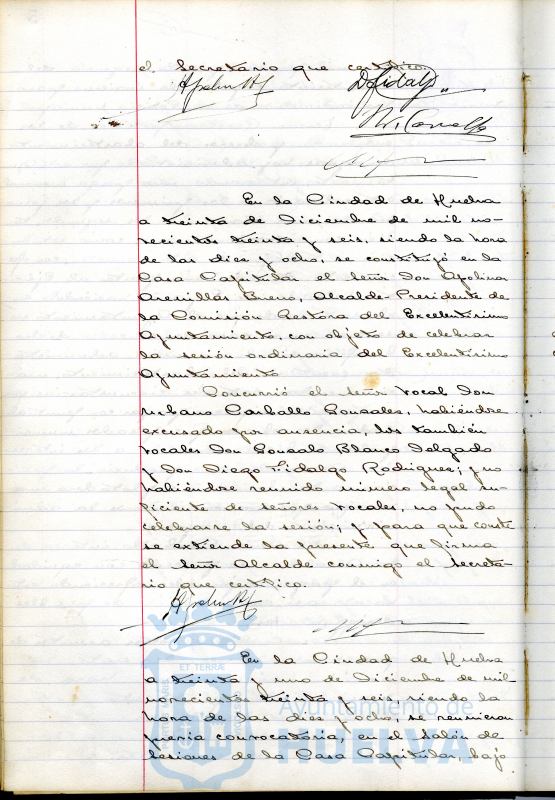 el Secretario que certifico.
D. Fidalgo
En la Ciudad de Huelva
a treinta de Diciembre de mil no-
vecientos treinta y seis, siendo la hora
de las dies y ocho, se constituyó en la
Casa Capitular el señor Don Apolinar
Arenillas Bueno, Alcalde-Presidente de
la Comisión Gestora del Excelentísimo
Ayuntamiento, con objeto de celebrar
la sesión ordinaria del Excelentísimo
Ayuntamiento
Concurrió el señor vocal Don
Urbano Carballo Gonsales, habiéndose
excusado por ausencia, los también
vocales Don Gonsalo Blanco Delgado
y Don Diego Fidalgo Rodrigues; y no
habiéndose reunido número legal su-
ficiente de señores vocales, no pudo
celebrarse la sesión; y para que conste
se extiende la presente que firma
el señor Alcalde conmigo el Secreta-
rio que certifico.
En la Ciudad de Huelva
a treinta y uno de Diciembre de mil
novecientos treinta y seis, siendo la
hora de las dies y ocho, se reunieron
previa convocatoria, en el salón de
sesiones de la Casa Capitular, bajo
ET TERRÆ
Ayuntamiento de
HUELVA